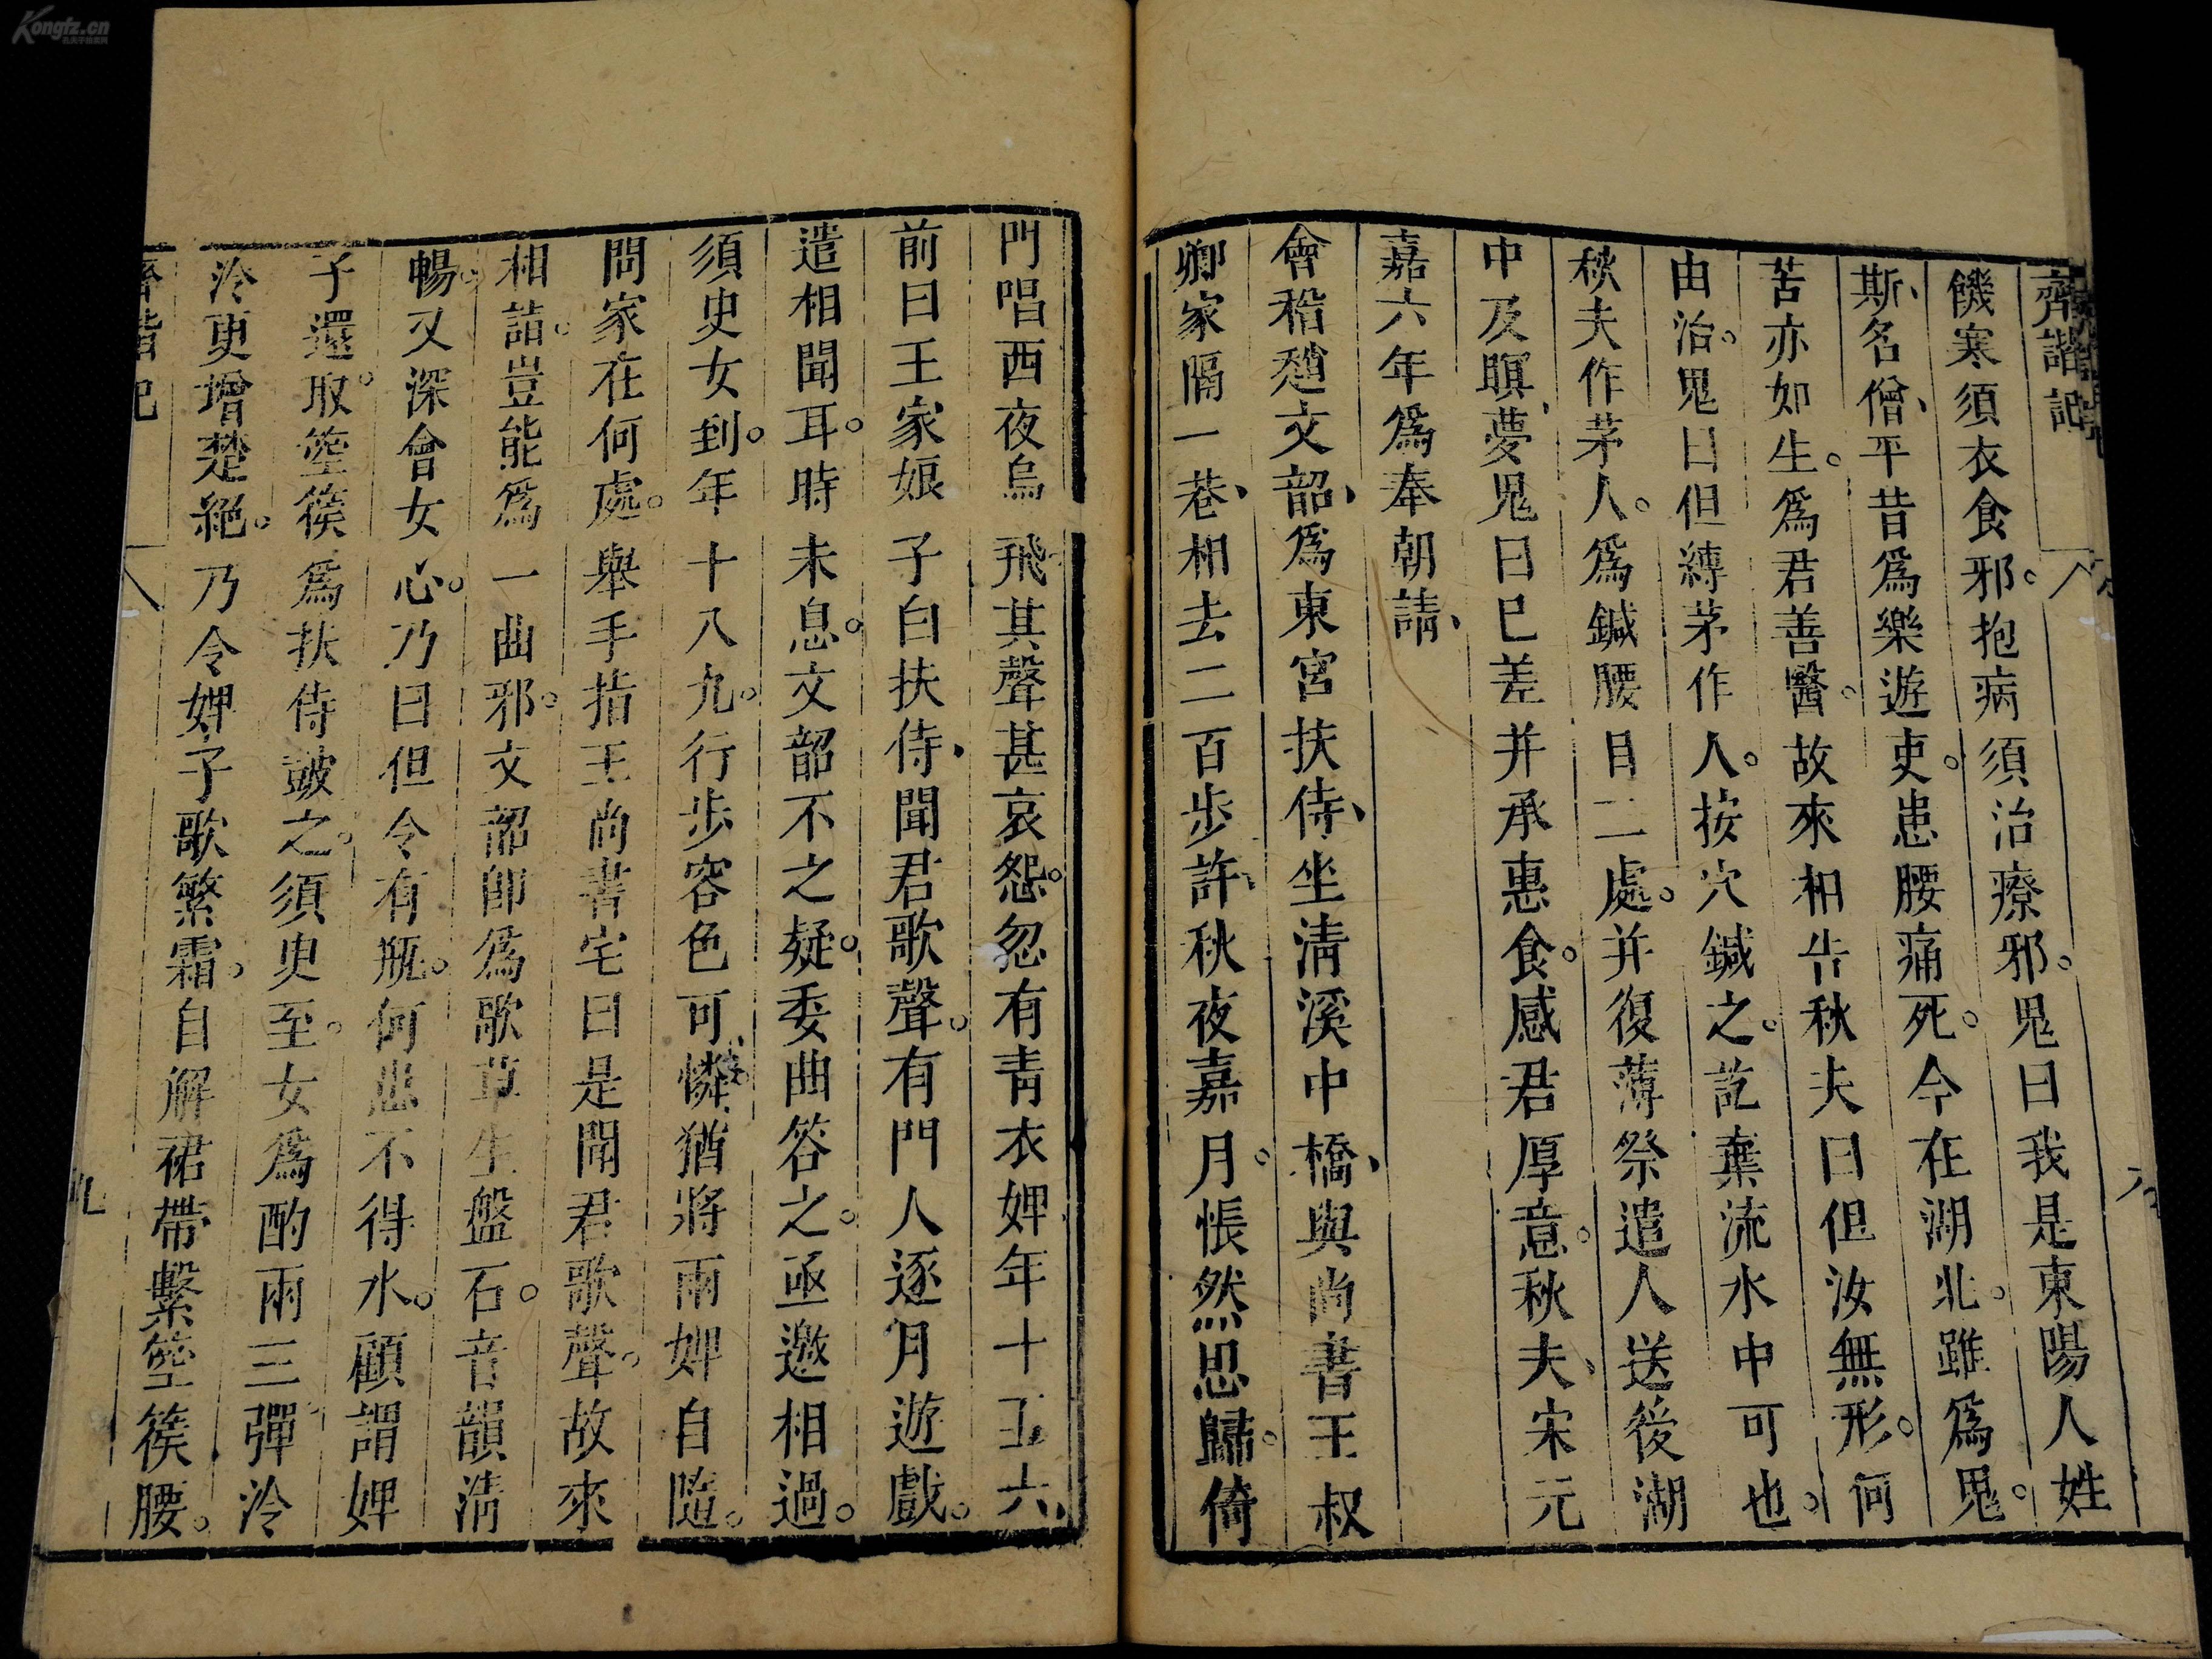 齊諧記
饑寒須衣食邪。抱病須治療邪。鬼曰我是東陽人姓
斯、名僧、平昔爲樂遊吏。患腰痛死。今在湖北。雖爲鬼。
苦亦如生。爲君善醫。故來相告秋夫曰但汝無形。何
由治。鬼曰但縛茅作人。按穴鍼之。訖棄流水中可也。
秋夫作茅人。爲鍼腰目二處。并復薄祭遣人送後湖
中及暝、夢鬼曰已差并承惠食。感君厚意。秋夫、宋元
嘉六年爲奉朝請、
會稽趙文韶、爲東宮扶侍、坐清溪中橋、與尚書王叔
卿家隔一巷、相去二百步許、秋夜嘉月。悵然思歸。倚
門唱西夜烏飛其聲甚哀怨。忽有青衣婢年十五六、
前曰王家娘子白扶侍、聞君歌聲。有門人逐月遊戲。
遣相聞耳。時未息。文韶不之疑。委曲答之。亟邀相過。
須臾女到。年十八九。行步容色可憐。猶將兩婢自隨。
問家在何處。舉手指王尚書宅曰是聞君歌聲。故來
相詣。豈能爲一曲邪。文韶即爲歌草生盤石。音韻清
暢。又深會女心。乃曰但令有瓶。何患不得水。顧謂婢
子還。取箜篌爲扶侍鼓之。須臾至。女爲酌兩三彈泠
泠更增楚絕。乃令婢子歌繁霜。自解裙帶繫箜篌腰。
齊諧記
九
Kongfz.cn